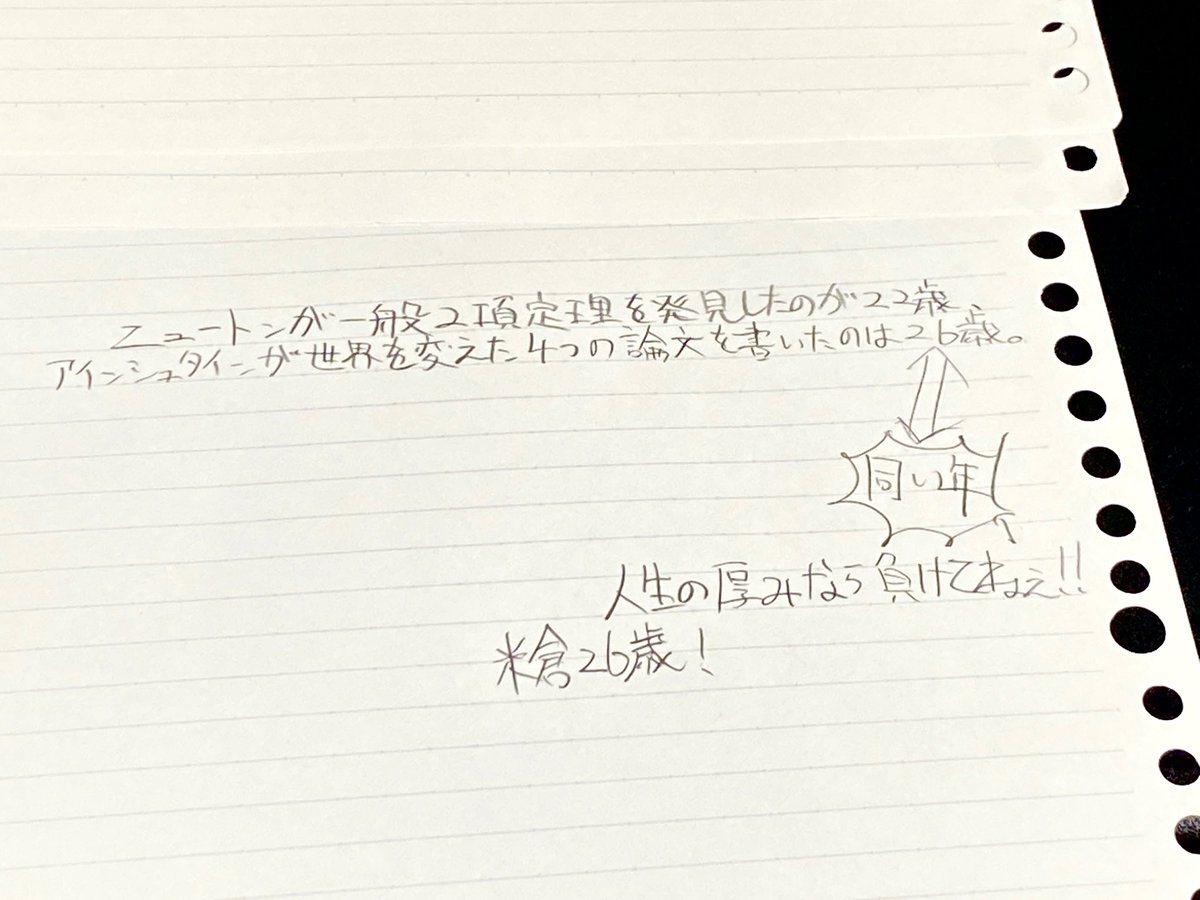 ニュートンが一般2項定理を発見したのが22歳、
アインシュタインが世界を変えた4つの論文を書いたのは26歳。
同い年
人生の厚みなら負けてねぇ!!
米倉26歳!